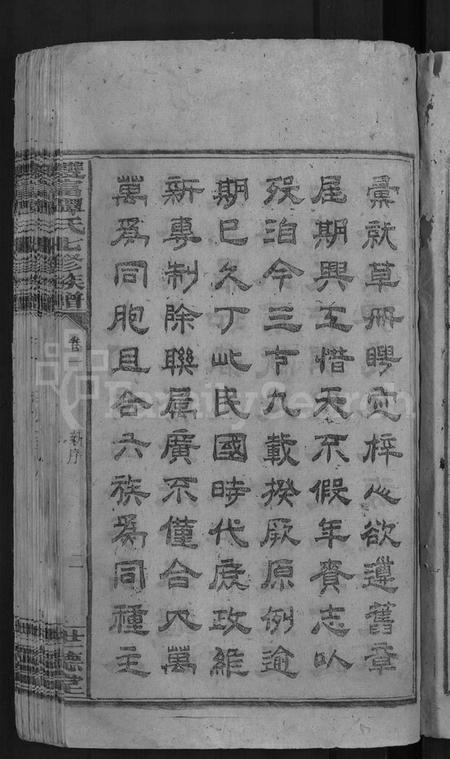 彙就草冊聘定梓心欲遵舊章
屆期興工惜天不假年賫志以
歿洎今三市九載揆厥原例逾
期已久丁此民國時代庶政維
新專制除聯屬廣不僅合四萬
萬爲同胞且合六族爲同種主
氏七修族譜
卷首
新序
二
德堂
FamilySearch